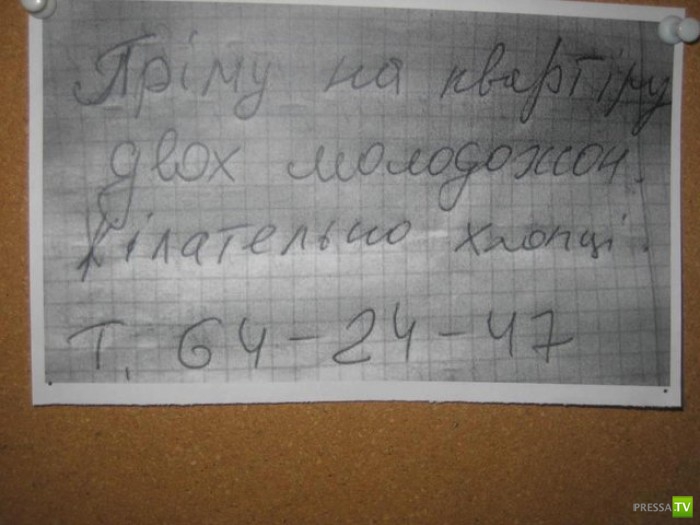 Пріму на квартіру
двох молодожон.
Жілательно хлопці.
Т. 64-24-47
PRESSA.TV